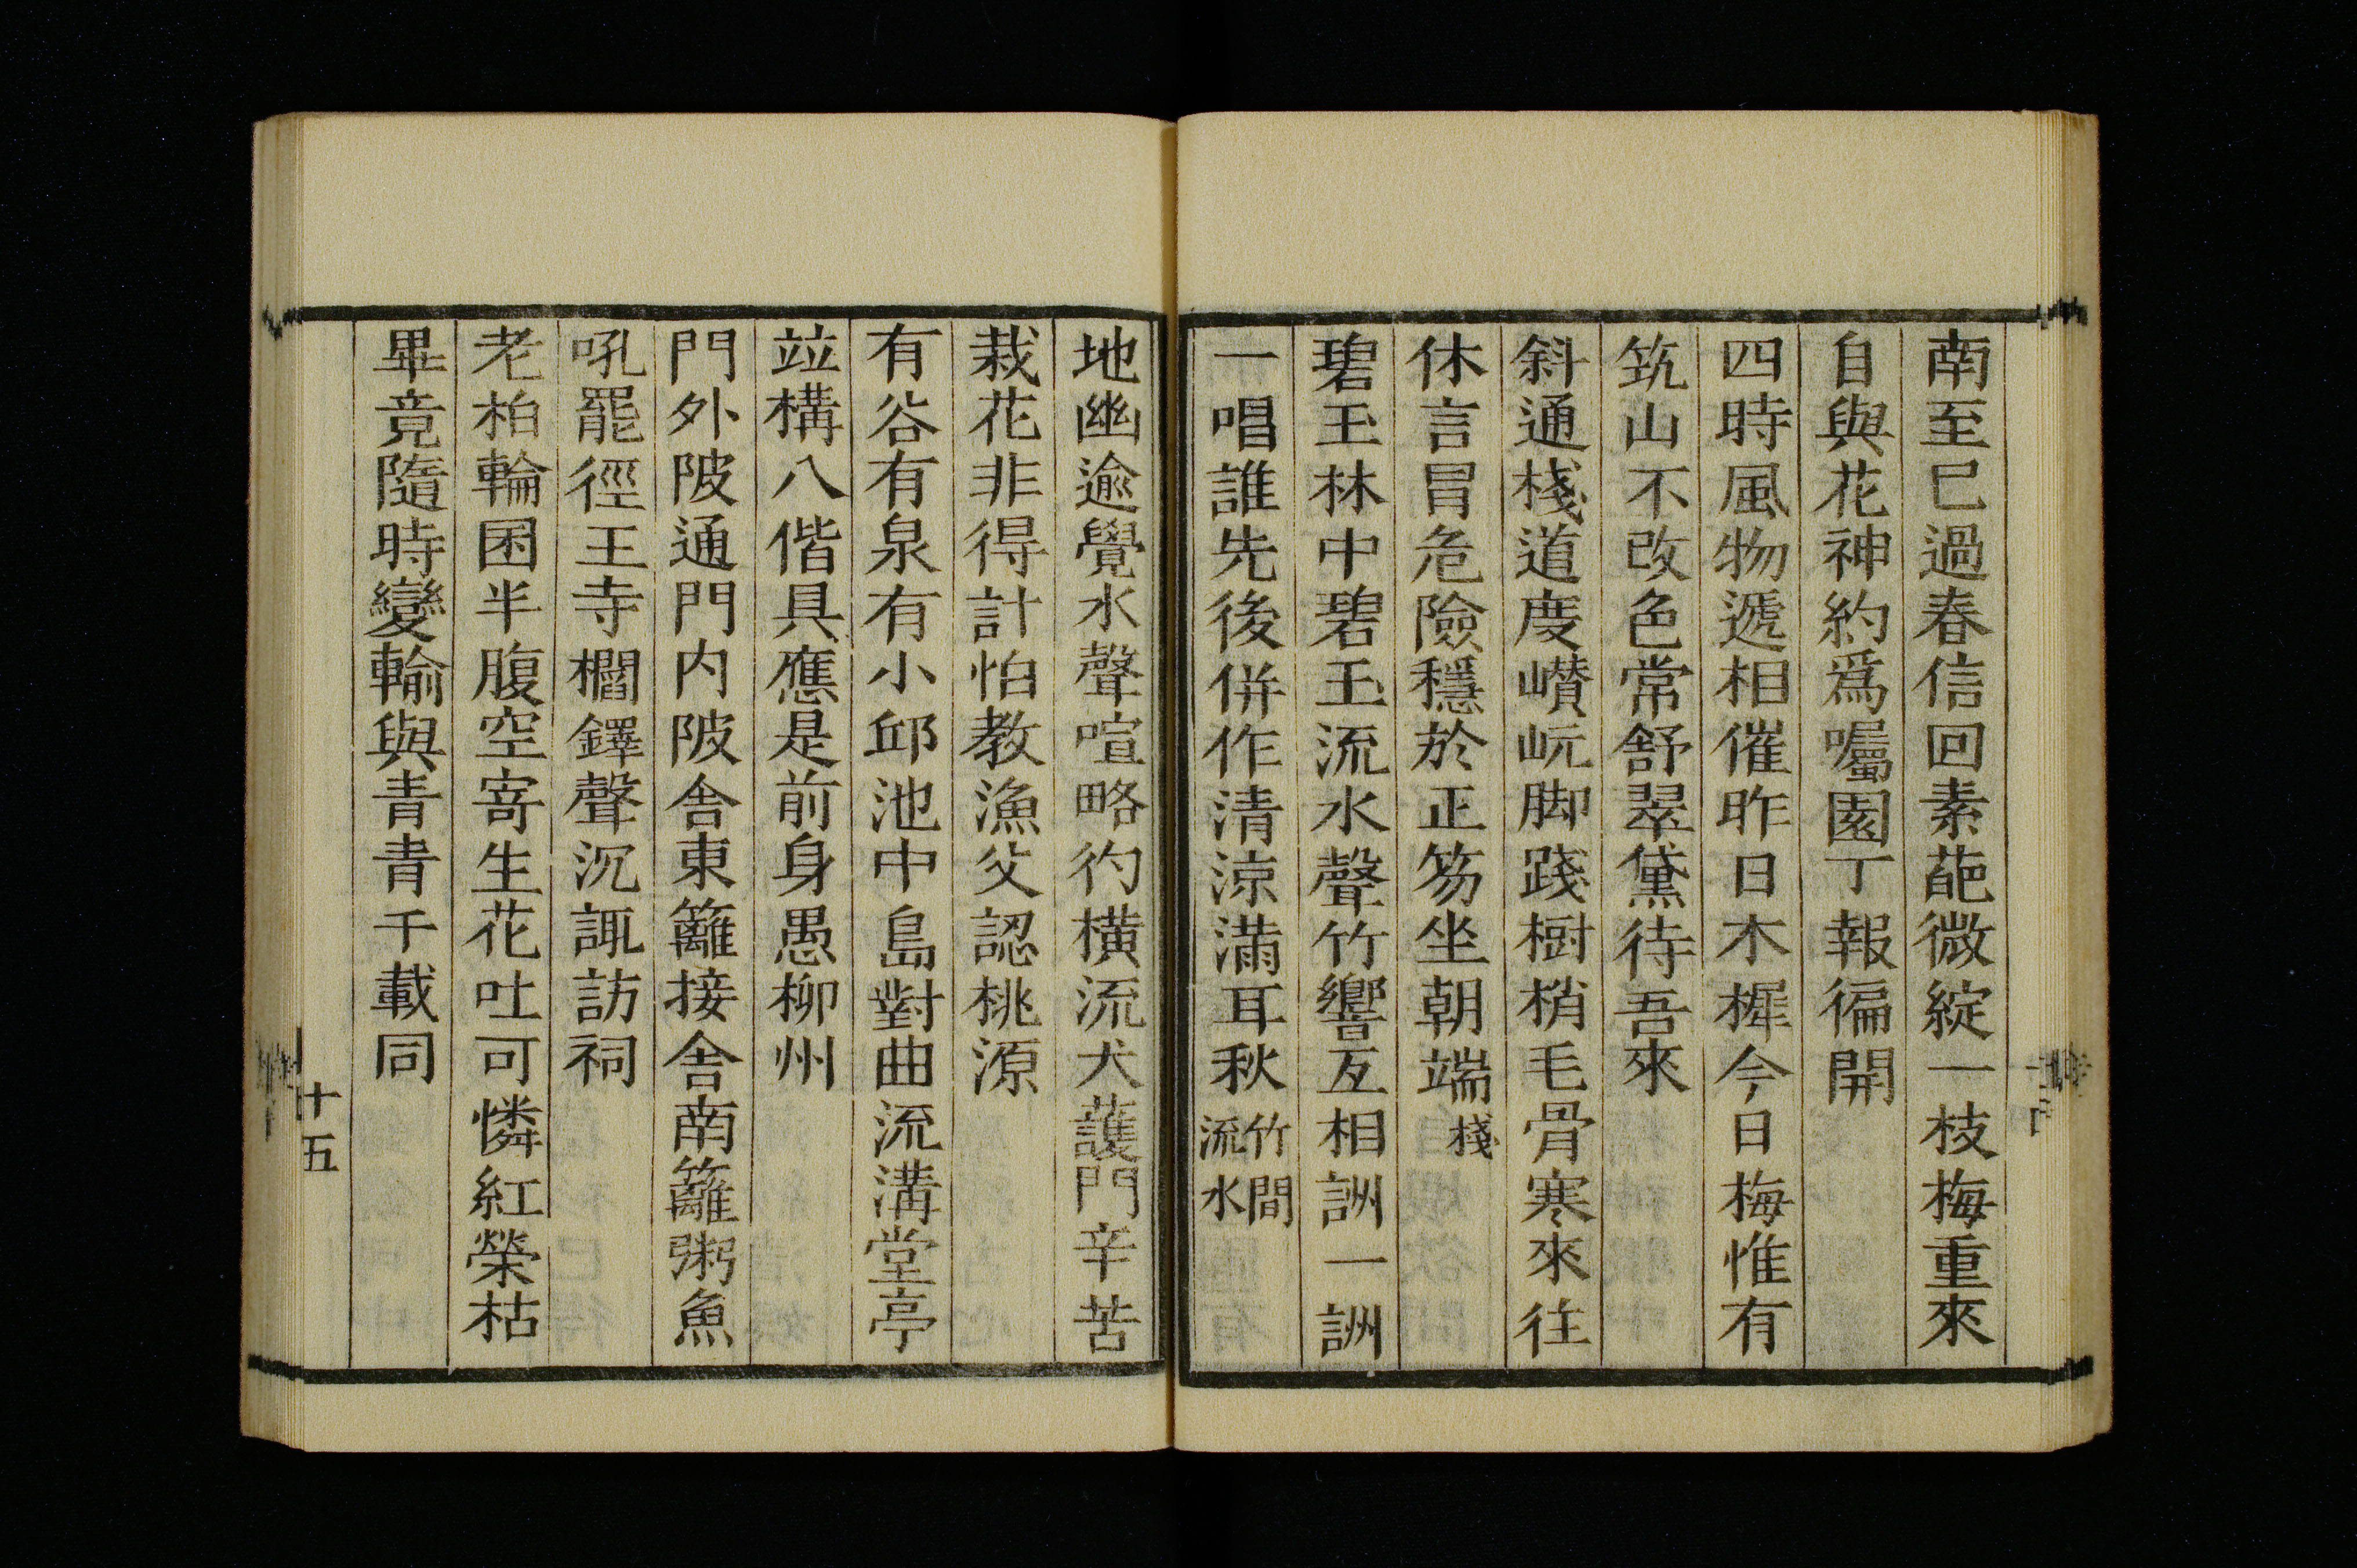 南至已過春信回素葩微綻一枝梅重來
自與花神約爲囑園丁報徧開
四時風物遞相催昨日木樨今日梅惟有
筑山不改色常舒翠黛待吾來
斜通棧道度巑岏脚踐樹梢毛骨寒來往
休言冒危險穩於正笏坐朝端 棧
碧玉林中碧玉流水聲竹響互相詶一詶
一唱誰先後併作清涼滿耳秋 竹間
流水
地幽逾覺水聲喧略彴橫流犬護門辛苦
栽花非得計怕教漁父認桃源
有谷有泉有小邱池中島對曲流溝堂亭
竝構八偕具應是前身愚柳州
門外陂通門内陂舍東籬接舍南籬粥魚
吼罷徑王寺櫩鐸聲沉諏訪祠
老柏輪囷半腹空寄生花吐可憐紅榮枯
畢竟隨時變輸與青青千載同
十五